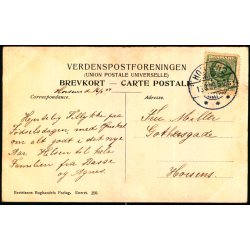 VERDENSPOSTFORENINGEN
(UNION POSTALE UNIVERSELLE)
BREVKORT — CARTE POSTALE
Horsens d.
Correspondance.
Adresse.
Hjertelig Tillykke paa
Fødselsdagen, med Ønsket
om alt godt i det nye
Aar. Hilsen til hele
Familien fra Basse
og Agnes
Fru Møller
Gothersgade
Horsens
Bertelsens Boghandels Forlag. Eneret. 250.